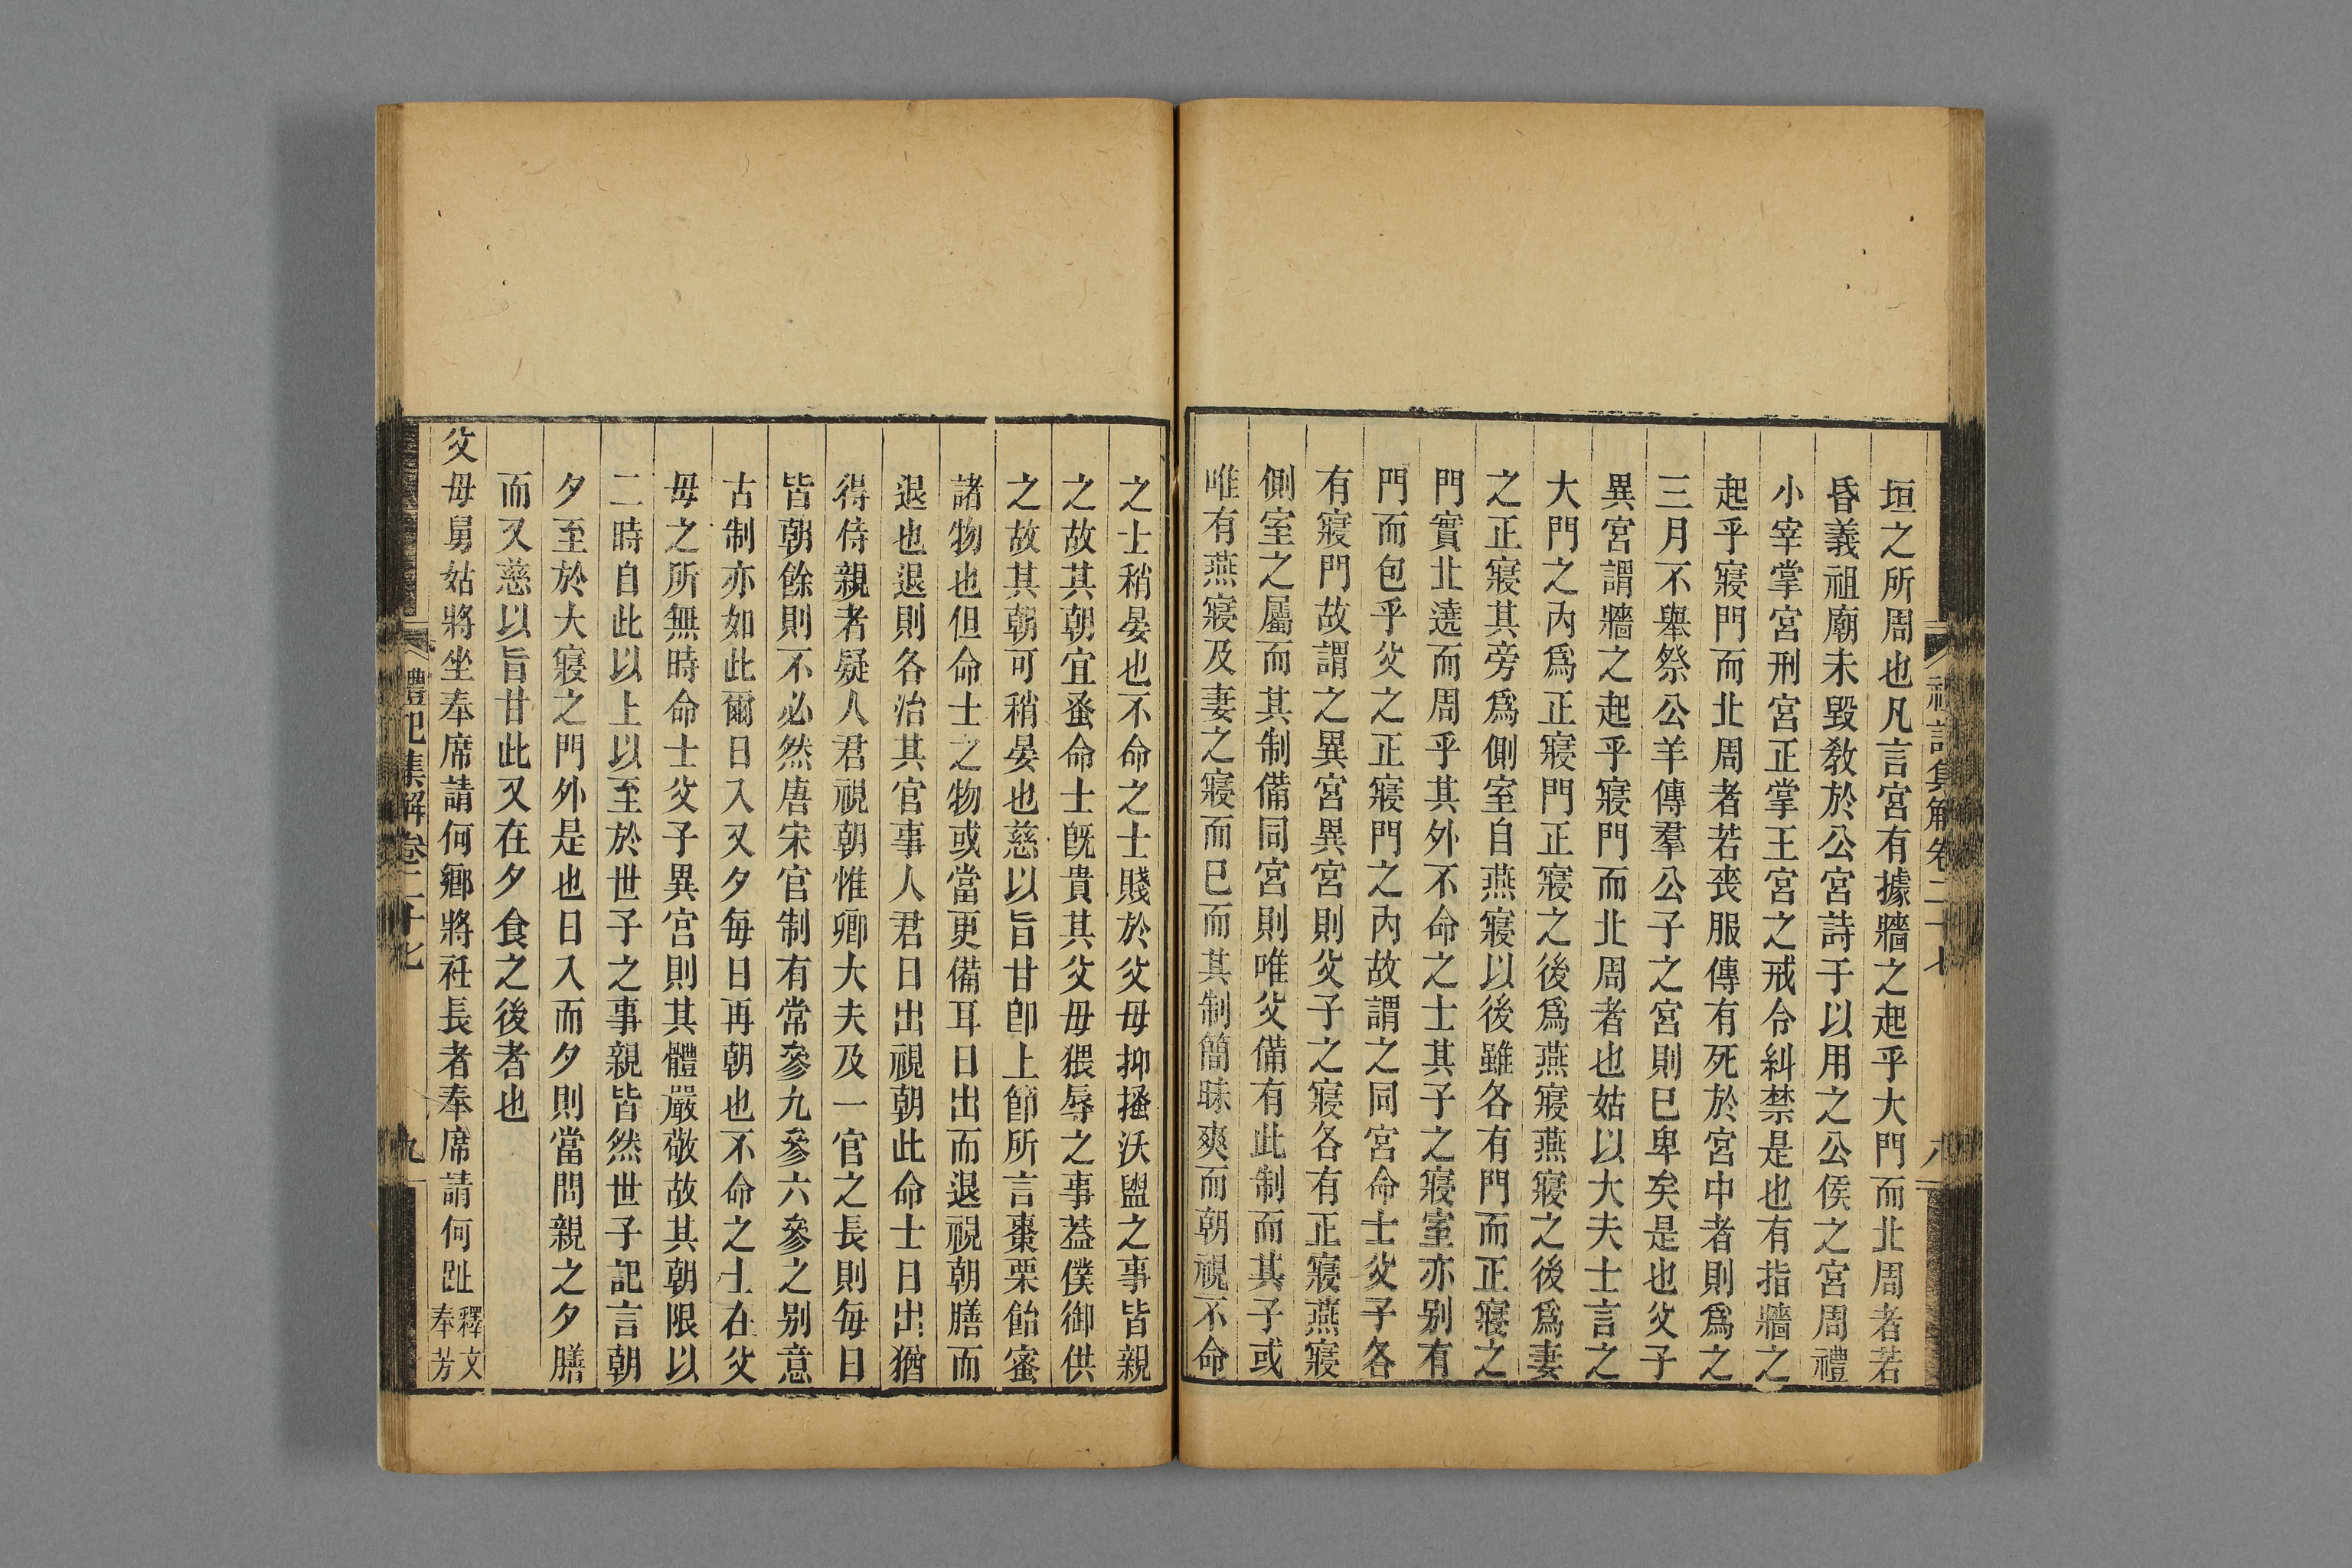 禮記集解卷二十七
八
垣之所周也凡言宮有據牆之起乎大門而北周者若
昏義祖廟未毀敎於公宮詩于以用之公侯之宮周禮
小宰掌宮刑宮正掌王宮之戒令糾禁是也有指牆之
起乎寢門而北周者若喪服傳有死於宮中者則爲之
三月不舉祭公羊傳羣公子之宮則已卑矣是也父子
異宮謂牆之起乎寢門而北周者也姑以大夫士言之
大門之內爲正寢門正寢之後爲燕寢燕寢之後爲妻
之正寢其旁爲側室自燕寢以後雖各有門而正寢之
門實北遶而周乎其外不命之士其子之寢室亦別有
門而包乎父之正寢門之內故謂之同宮命士父子各
有寢門故謂之異宮異宮則父子之寢各有正寢燕寢
側室之屬而其制備同宮則唯父備有此制而其子或
唯有燕寢及妻之寢而已而其制簡昧爽而朝視不命
之士稍晏也不命之士賤於父母抑搔沃盥之事皆親
之故其朝宜蚤命士旣貴其父母猥辱之事蓋僕御供
之故其朝可稍晏也慈以旨甘卽上節所言棗栗飴蜜
諸物也但命士之物或當更備耳日出而退視朝膳而
退也退則各治其官事人君日出視朝此命士日出猶
得侍親者疑人君視朝惟卿大夫及一官之長則每日
皆朝餘則不必然唐宋官制有常參九參六參之別意
古制亦如此爾日入又夕每日再朝也不命之士在父
母之所無時命士父子異宮則其體嚴敬故其朝限以
二時自此以上以至於世子之事親皆然世子記言朝
夕至於大寢之門外是也日入而夕則當問親之夕膳
而又慈以旨甘此又在夕食之後者也
父母舅姑將坐奉席請何鄉將衽長者奉席請何趾釋文
奉芳
禮記集解卷二十七
九